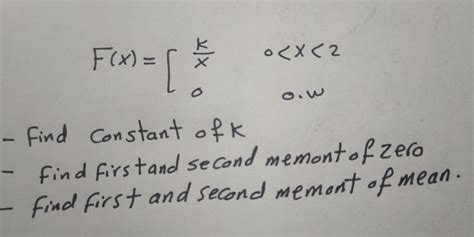 F(x) = [ k/x   0<x<2
0   o.w
- Find constant of k
- find first and second memont of zero
- find first and second memont of mean.